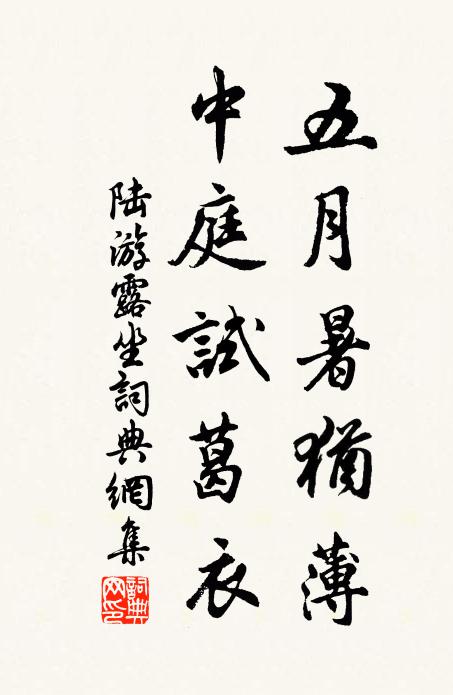 五月暑猶薄
中庭試葛衣
陆游露坐詞典網集
詞典網印